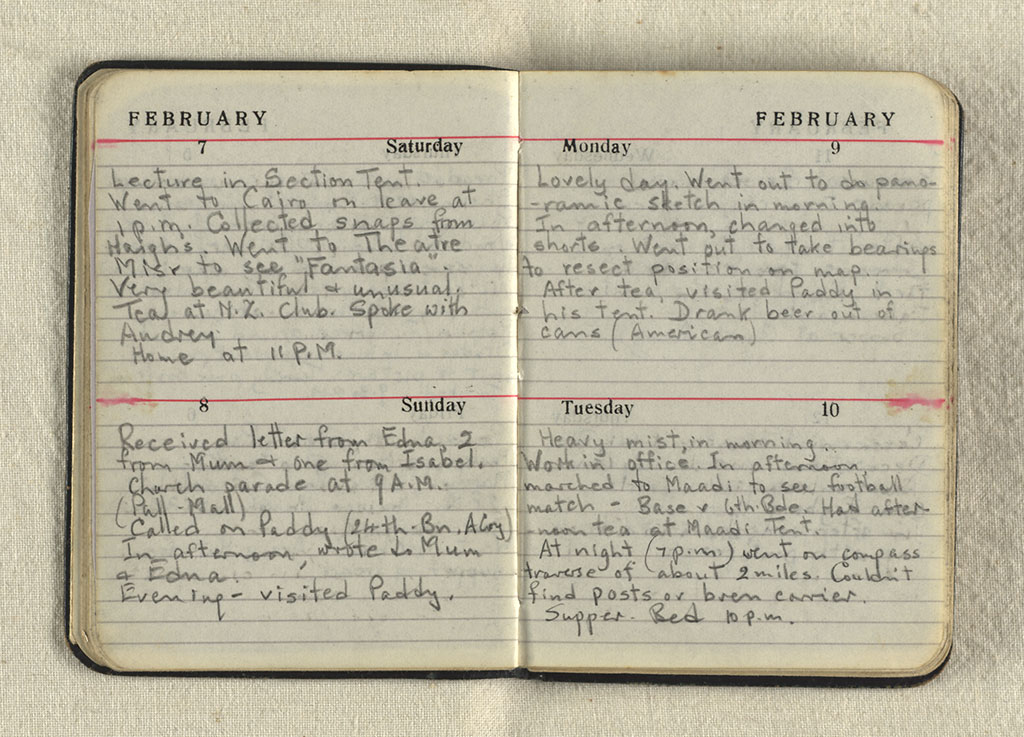 FEBRUARY
7 Saturday
Lecture in Section Tent.
Went to Cairo on leave at
1 p.m. Collected snaps from
Haighs. Went to Theatre
Misr to see "Fantasia".
Very beautiful & unusual.
Tea at N.Z. Club. Spoke with
Audrey.
Home at 11 P.M.
8 Sunday
Received letter from Edna, 2
from Mum & one from Isabel.
Church parade at 9 A.M.
(Pall-Mall)
Called on Paddy (24th. Bn. A Coy)
In afternoon, wrote to Mum
& Edna.
Evening - visited Paddy.
FEBRUARY
Monday 9
Lovely day. Went out to do pano-
-ramic sketch in morning
In afternoon, changed into
shorts. Went out to take bearings
to resect position on map.
After tea, visited Paddy in
his tent. Drank beer out of
cans (American)
Tuesday 10
Heavy mist, in morning.
Work in office. In afternoon,
marched to Maadi to see football
match - Base v 6th. Bde. Had after-
-noon tea at Maadi Tent.
At night (7 p.m.) went on compass
traverse of about 2 miles. Couldn't
find posts or bren carrier.
Supper. Bed 10 p.m.